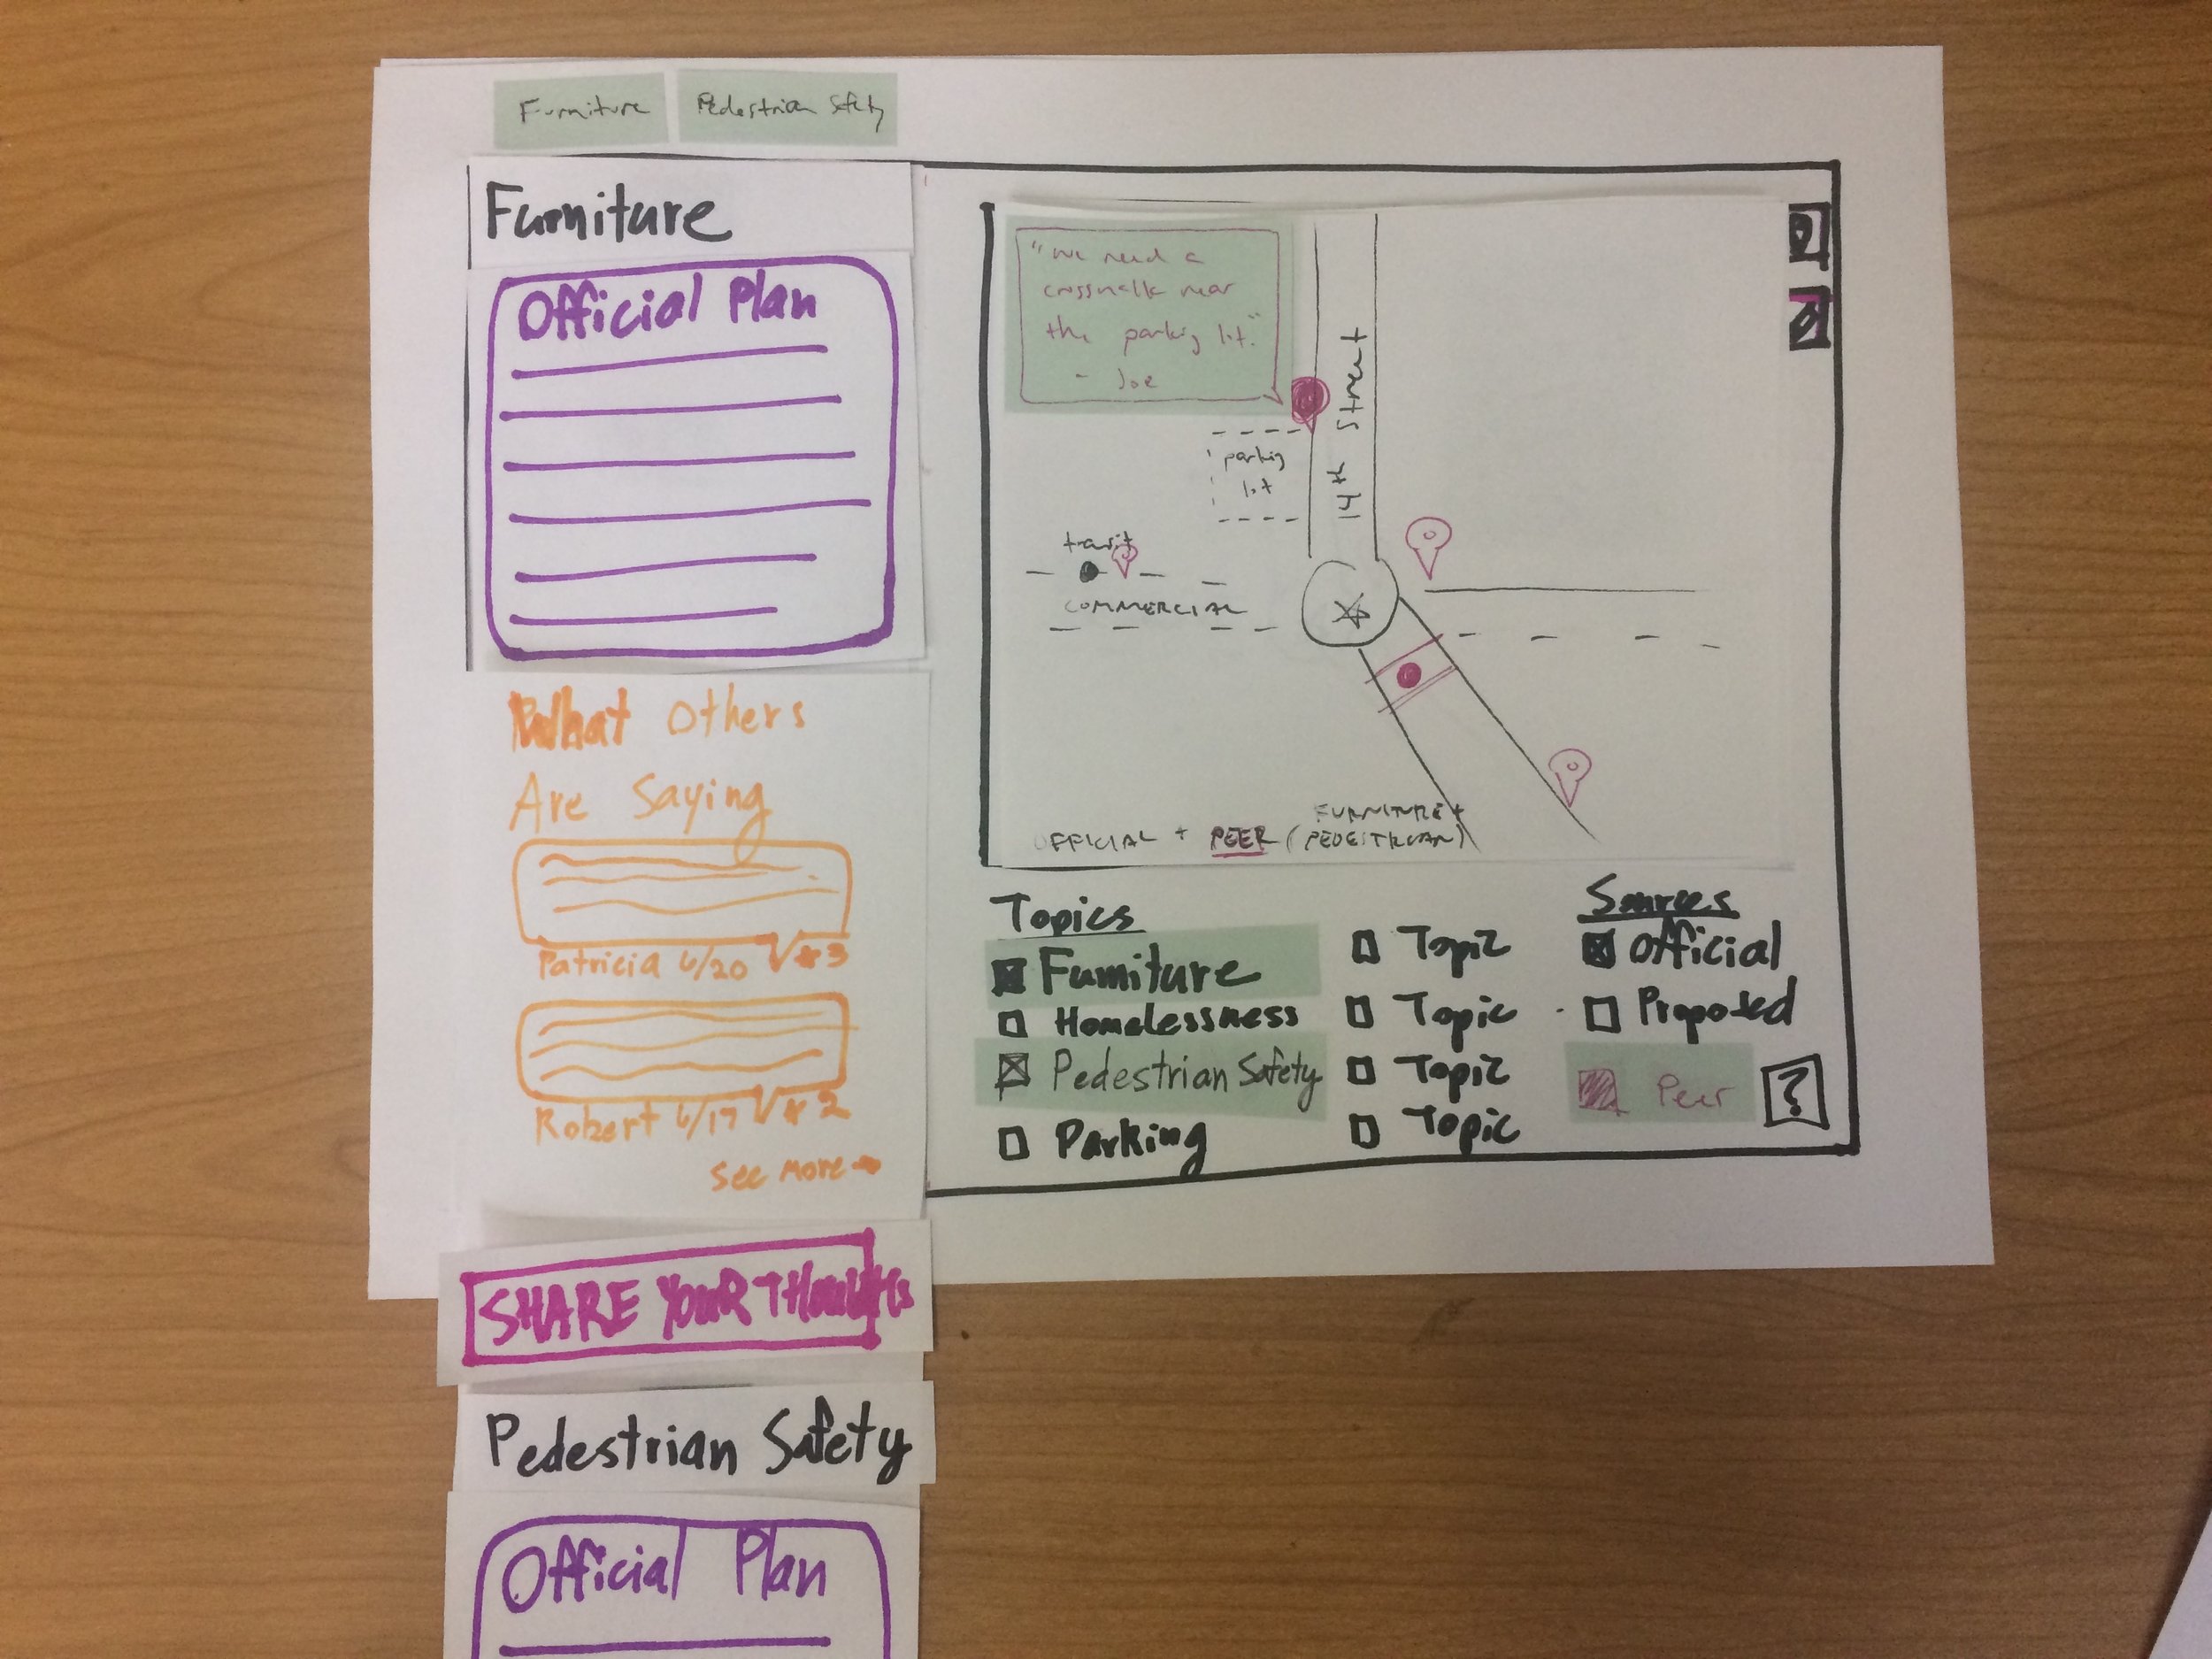 Furniture
Pedestrian Safety
Furniture
Official Plan
What Others
Are Saying
Patricia 6/20
3
Robert 6/17
2
See more →
SHARE YOUR THOUGHTS
Pedestrian Safety
Official Plan
"We need a
crosswalk near
the parking lot."
- Joe
14th Street
parking
lot
transit
COMMERCIAL
FURNITURE +
OFFICIAL + PEER (PEDESTRIAN)
Topics
Furniture
Homelessness
Pedestrian Safety
Parking
Topic
Topic
Topic
Topic
Sources
Official
Proposed
Peer
?